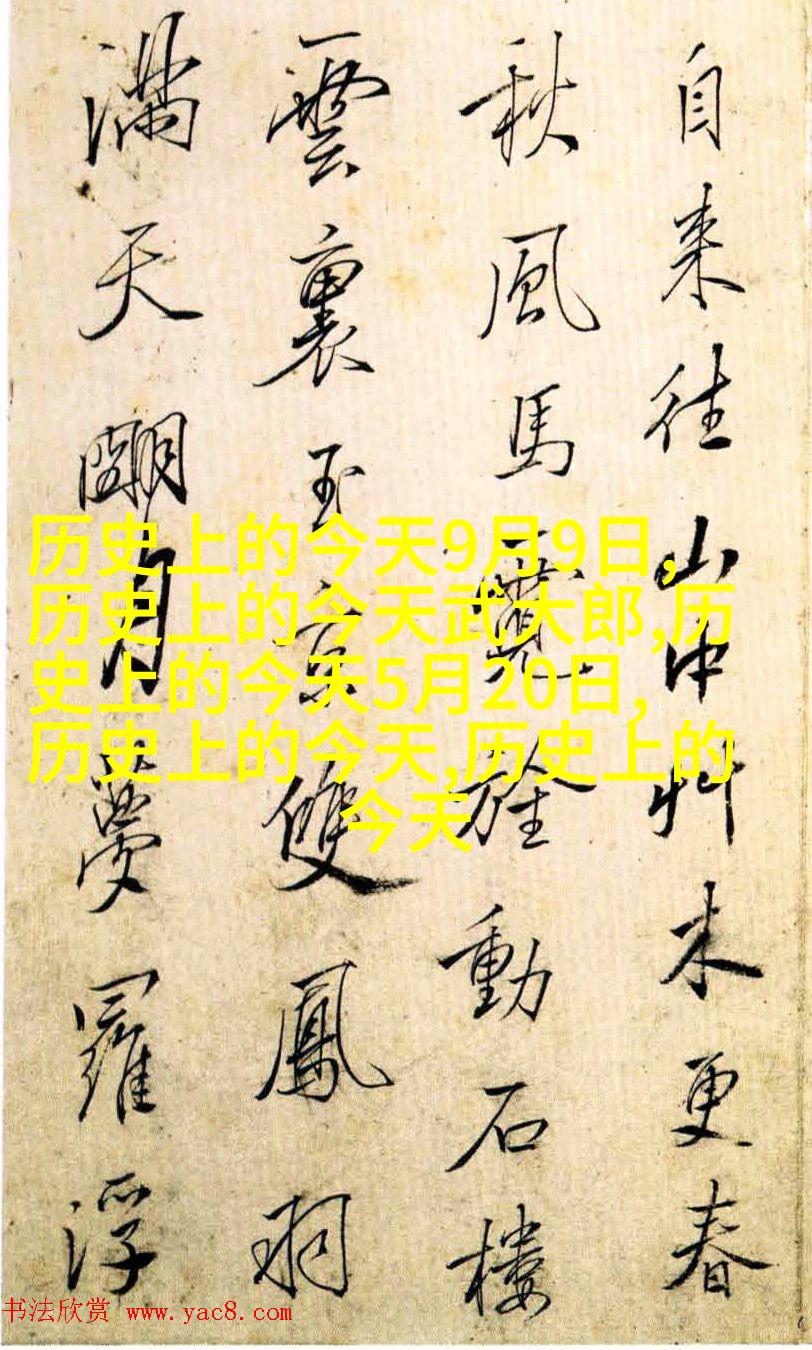 自来往山中艸木更春
秋風馬霓旌動石樓
雲裏玉京雙鳳羽
滿天朙月夢羅浮
历史上的今天9月9日,
历史上的今天武大郎,历
史上的今天5月20日,
历史上的今天,历史上的
今天
书法欣赏 www.yac8.com